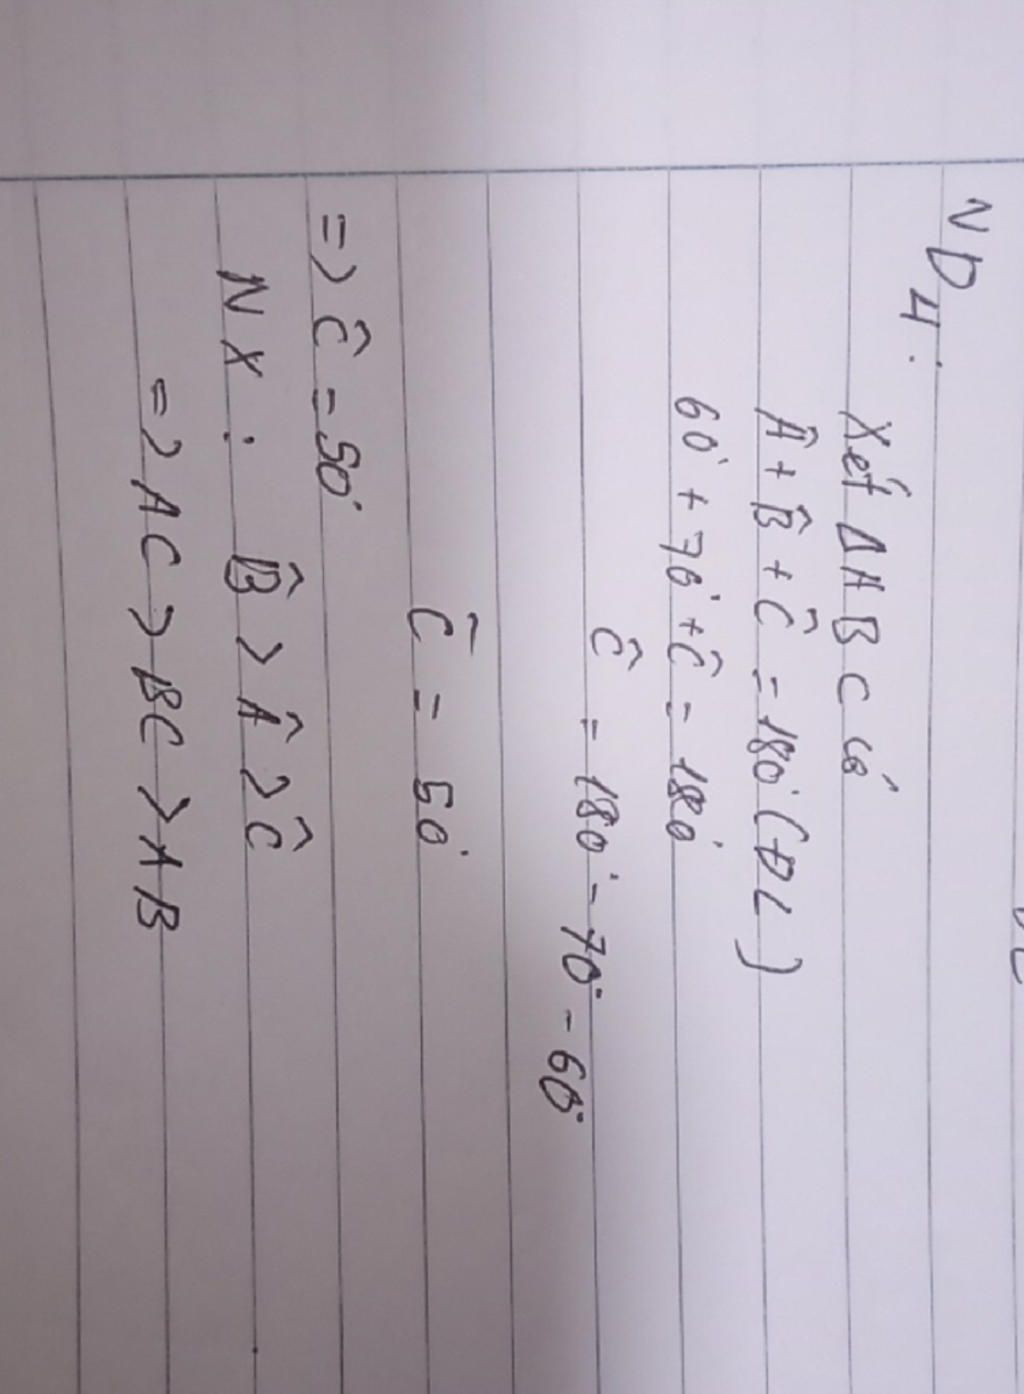 ND4:
Xét ΔABC có
Â + B̂ + Ĉ = 180° (ĐL)
60° + 70° + Ĉ = 180°
Ĉ = 180° - 70° - 60°
Ĉ = 50°
=> Ĉ = 50°
NX: B̂ > Â > Ĉ
=> AC > BC > AB